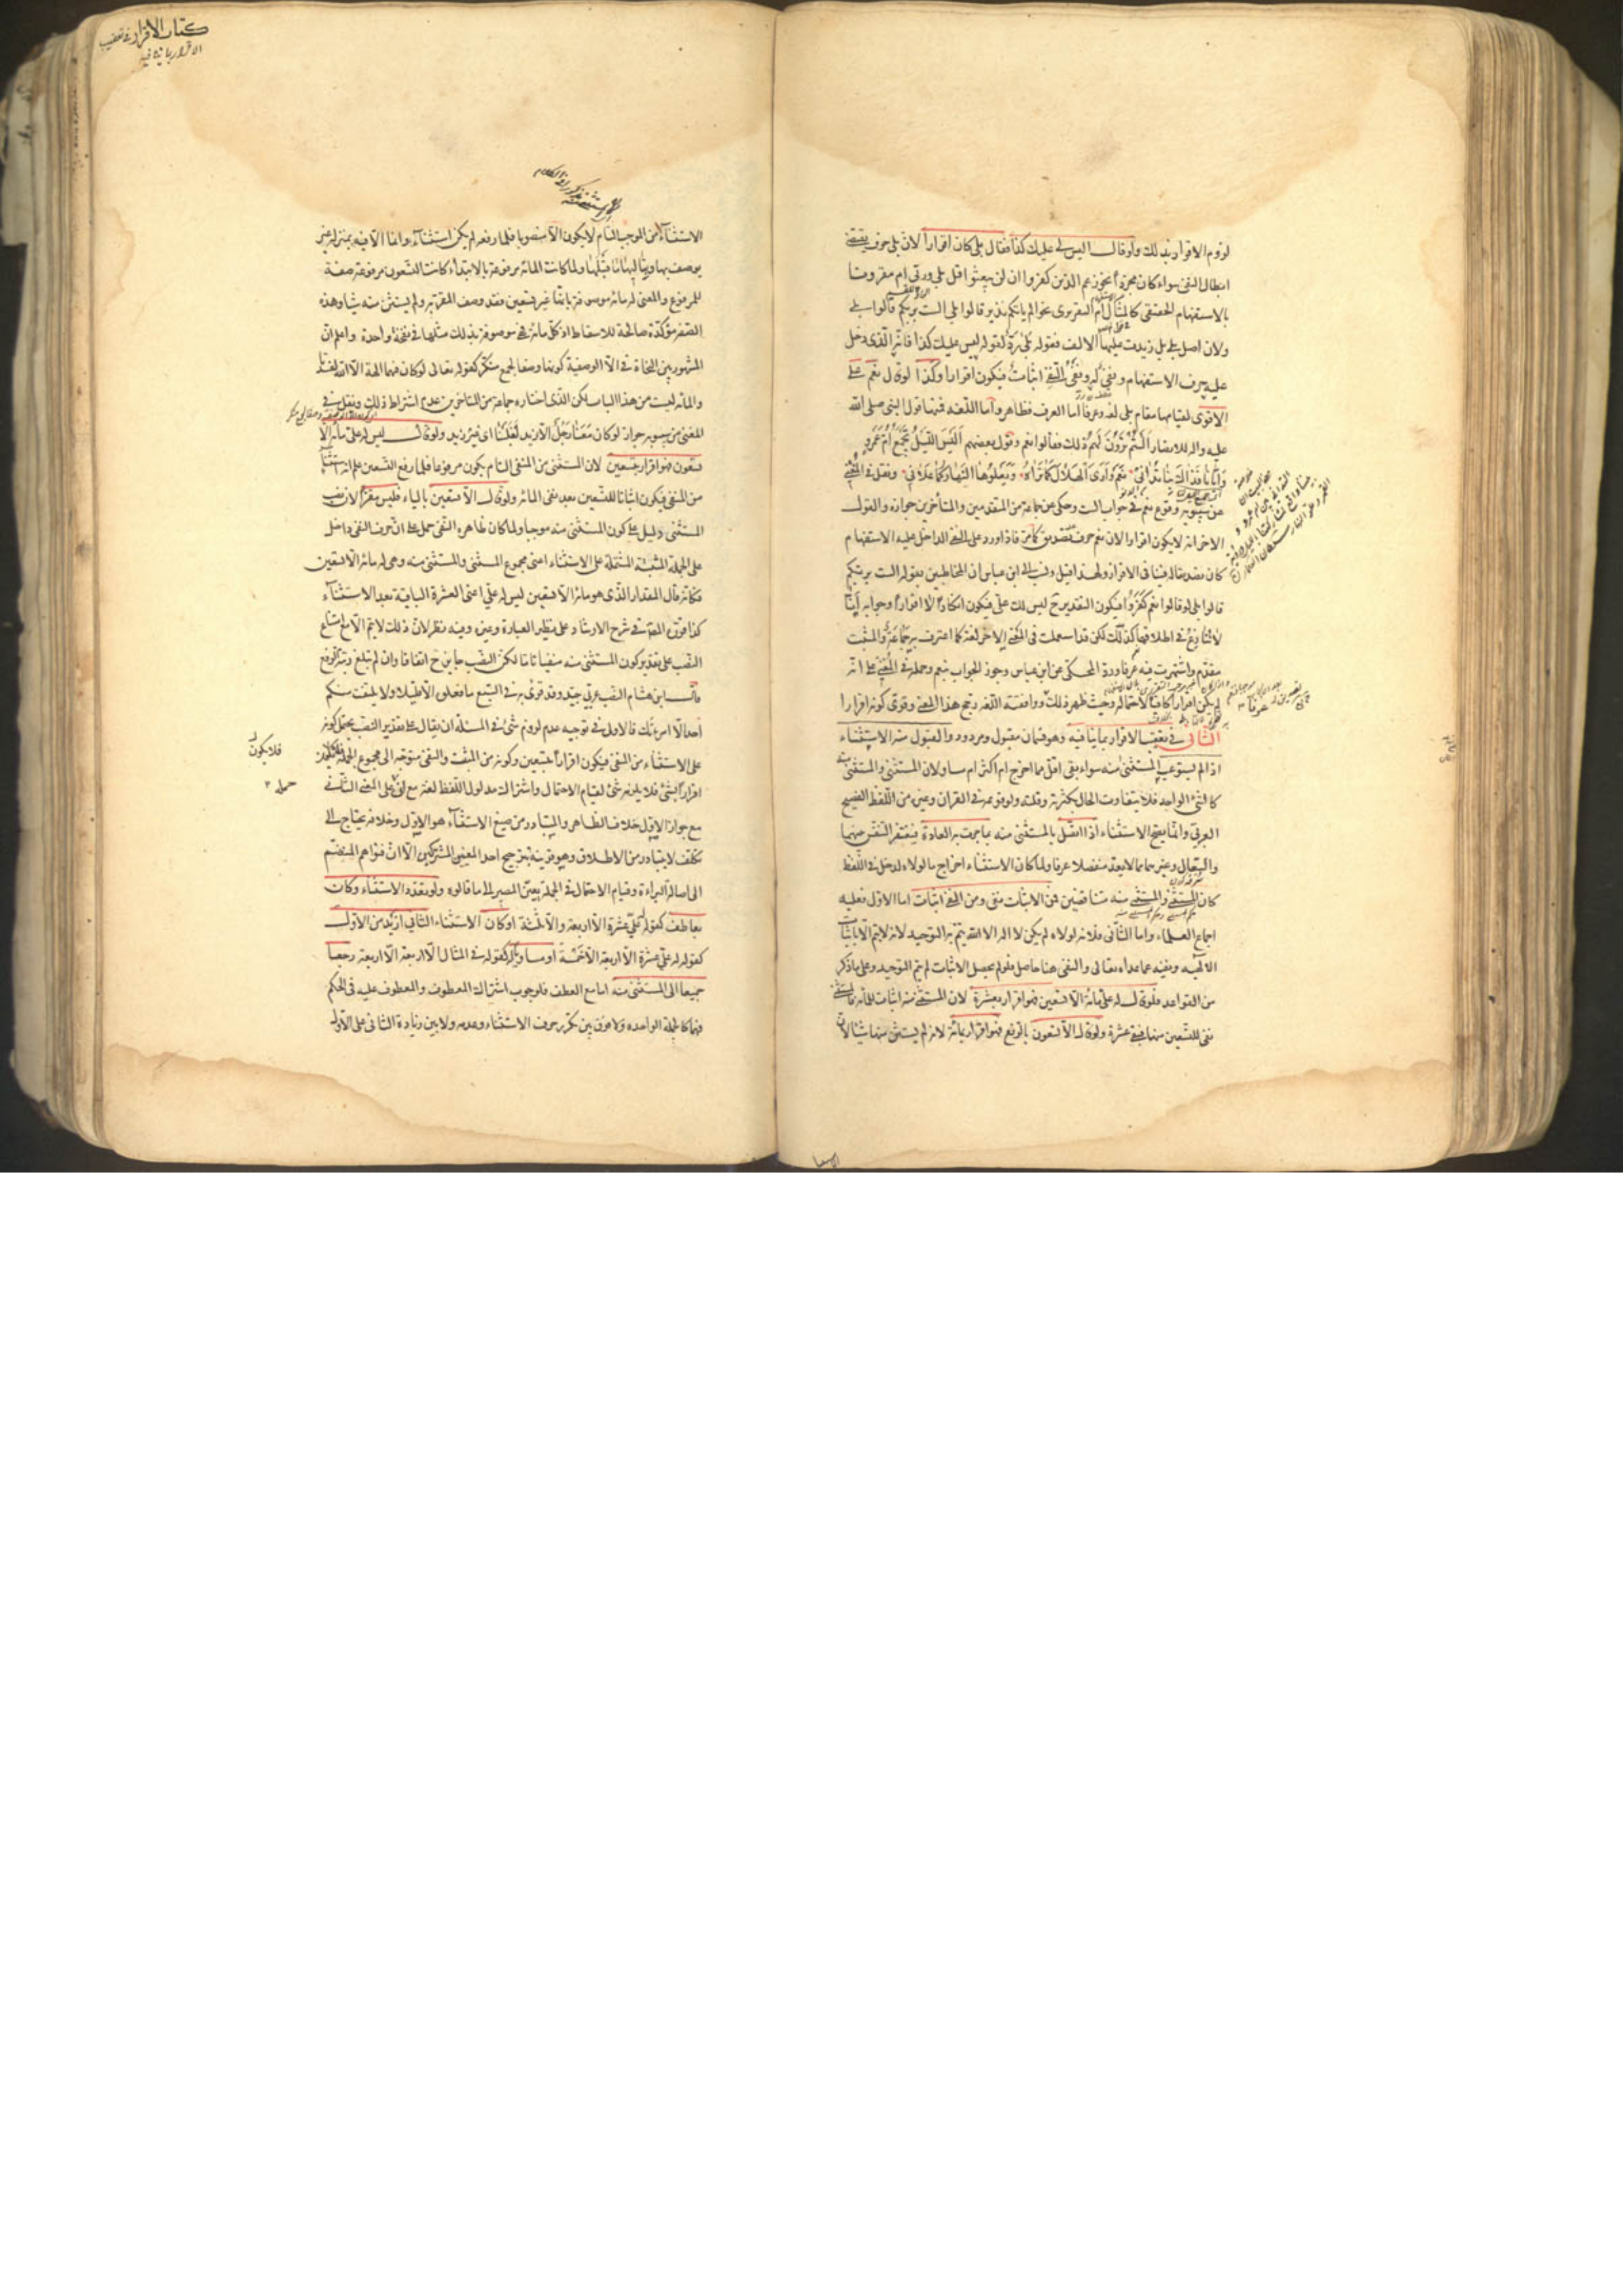 لزوم الاقرار بذلك ولو قال اليس لي عليك كذا فقال بلى كان اقرارا لان بلى حرف يقتضي
ابطال النفي سواء كان مجردا نحو زعم الذين كفروا ان لن يبعثوا قل بلى وربي ام مقرونا
بالاستفهام الحقيقي كالمثال ام التقريري نحو الم ياتكم نذير قالوا بلى الست بربكم قالوا بلى
ولان اصل بلى بل زيدت عليها الالف فقوله بلى رد لقوله ليس عليك كذا فانه الذي دخل
عليه حرف الاستفهام ونفي له ونفي النفي اثبات فيكون اقرارا وكذا لو قال نعم على
الاقوى لقيامها مقام بلى لغة وعرفا اما العرف فظاهر واما اللغة فمنها قول النبي صلى الله
عليه واله للانصار الستم ترون لهم ذلك فقالوا نعم وقول بعضهم اليس الليل يجمع ام عمرو
وايانا فذاك بنا تداني نعم وارى الهلال كما تراه ويعلوها النهار كما علاني ونقل في المغني
عن سيبويه وقوع نعم في جواب الست وحكى عن جماعة من المتقدمين والمتأخرين جوازه والقول
الاخر انه لا يكون اقرارا لان نعم حرف تصديق كما مر فاذا ورد على النفي الداخل عليه الاستفهام
كان تصديقا له فينافي الاقرار ولهذا قيل ونسب الى ابن عباس ان المخاطبين بقوله الست بربكم
قالوا بلى لو قالوا نعم كفروا فيكون التقدير ح ليس لك علي فيكون انكارا لا اقرارا وجوابه انا
لا ننازع في اطلاقها كذلك لكن قد استعملت في المعنى الاخر لغة كما اعترف به جماعة والمثبت
مقدم واشتهرت فيه عرفا ورد المحكي عن ابن عباس وجوز الجواب بنعم وحمله في المغني على انه
لم يكن اقرارا كافيا لاحتماله وحيث ظهر ذلك ووافقته اللغة رجح هذا المعنى وقوي كونه اقرارا
الثاني في تعقيب الاقرار بما ينافيه وهو قسمان مقبول ومردود والمقبول منه الاستثناء
اذا لم يستوعب المستثنى منه سواء بقي اقل مما اخرج ام اكثر ام مساو لان المستثنى والمستثنى منه
كالشيء الواحد فلا يتفاوت الحال بكثرته وقلته ولوقوعه في القران وغيره من اللفظ الفصيح
العربي وانما يصح الاستثناء اذا اتصل بالمستثنى منه بما جرت به العادة فيغتفر التنفس بينهما
والسعال وغيرهما مما لا يعد منفصلا عرفا ولما كان الاستثناء اخراج ما لولاه لدخل في اللفظ
كان المستثنى والمستثنى منه متناقضين فمن الاثبات نفي ومن النفي اثبات اما الاول فعليه
اجماع العلماء واما الثاني فلانه لولاه لم يكن لا اله الا الله يتم به التوحيد لانه لا يتم الا باثبات
الالهية ونفيه عما عداه تعالى والنفي هنا حاصل فلو لم يحصل الاثبات لم يتم التوحيد وعلى ما ذكر
من القواعد فلو قال له علي مائة الا تسعين فهو اقرار بعشرة لان المستثنى منه اثبات للمائة والمستثنى
نفي للتسعين منها فيبقى عشرة ولو قال الا تسعون بالرفع فهو اقرار بمائة لانه لم يستثن منها شيئا لان
كتاب الاقرار في تعقيب
الاقرار بما ينافيه
الاستثناء من الموجب التام لا يكون الا منصوبا فلما رفعه لم يكن استثناء وانما الا فيه بمنزلة غير
يوصف بها وبتاليها ما قبلها ولما كانت المائة مرفوعة بالابتداء كانت التسعون مرفوعة صفة
للمرفوع والمعنى له مائة موصوفة بانها غير تسعين فقد وصف المقر به ولم يستثن منه شيئا وهذه
الصفة مؤكدة صالحة للاسقاط اذ كل مائة فهي موصوفة بذلك مثلها في نفخة واحدة واعلم ان
المشهور بين النحاة في الا الوصفية كونها وصفا لجمع منكر كقوله تعالى لو كان فيهما الهة الا الله لفسدتا
والمائة ليست من هذا الباب لكن الذي اختاره جماعة من المتاخرين عدم اشتراط ذلك ونقل في
المغني عن سيبويه جواز لو كان معنا رجل الا زيد لغلبنا اي غير زيد ولو قال ليس له علي مائة الا
تسعون فهو اقرار بتسعين لان المستثنى من المنفي التام يكون مرفوعا فلما رفع التسعين علم انه استثناء
من المنفي فيكون اثباتا للتسعين بعد نفي المائة ولو قال الا تسعين بالياء فليس مقرا لان نصب
المستثنى دليل على كون المستثنى منه موجبا ولما كان ظاهره النفي حمل على ان حرف النفي داخل
على الجملة المثبتة المشتملة على الاستثناء اعني مجموع المستثنى والمستثنى منه وهي له مائة الا تسعين
فكانه قال المقدار الذي هو مائة الا تسعين ليس له علي اعني العشرة الباقية بعد الاستثناء
كذا قرره المصنف في شرح الارشاد على نظير العبارة وغيره وفيه نظر لان ذلك لا يتم الا مع امتناع
النصب على تقدير كون المستثنى منه منفيا تاما لكن النصب جايز ح اتفاقا وان لم تبلغ رتبة الرفع
قال ابن هشام النصب عربي جيد وقد قرئ به في السبع ما فعلوه الا قليلا ولا يلتفت منكم
احد الا امرأتك فالاولى في توجيه عدم لزوم شيء في المسئلة ان يقال على تقدير النصب يحتمل كونه
على الاستثناء من المنفي فيكون اقرارا بتسعين وكونه من المثبت والنفي متوجه الى مجموع الجملة فلا يكون
اقرارا بشيء فلا يلزمه شيء لقيام الاحتمال واشتراك مدلول اللفظ لغة مع ان حمله على المعنى الثاني
مع جواز الاول خلاف الظاهر والمتبادر من صيغ الاستثناء هو الاول وخلافه يحتاج الى
تكلف لا يتبادر من الاطلاق وهو قرينة ترجيح احد المعنيين المشتركين الا ان فتواهم المنضم
الى اصالة البراءة وقيام الاحتمال في الجملة يعين المصير الى ما قالوه ولو تعدد الاستثناء وكان
بعاطف كقوله له علي عشرة الا اربعة والا ثلثة او كان الاستثناء الثاني ازيد من الاول
كقوله له علي عشرة الا اربعة الا خمسة او مساويا له كقوله في المثال الا اربعة الا اربعة رجعا
جميعا الى المستثنى منه اما مع العطف فلوجوب اشتراك المعطوف والمعطوف عليه في الحكم
فهما كالجملة الواحدة ولا فرق بين تكرر حرف الاستثناء وعدمه ولا بين زيادة الثاني على الاول
فلا يكون
حمله